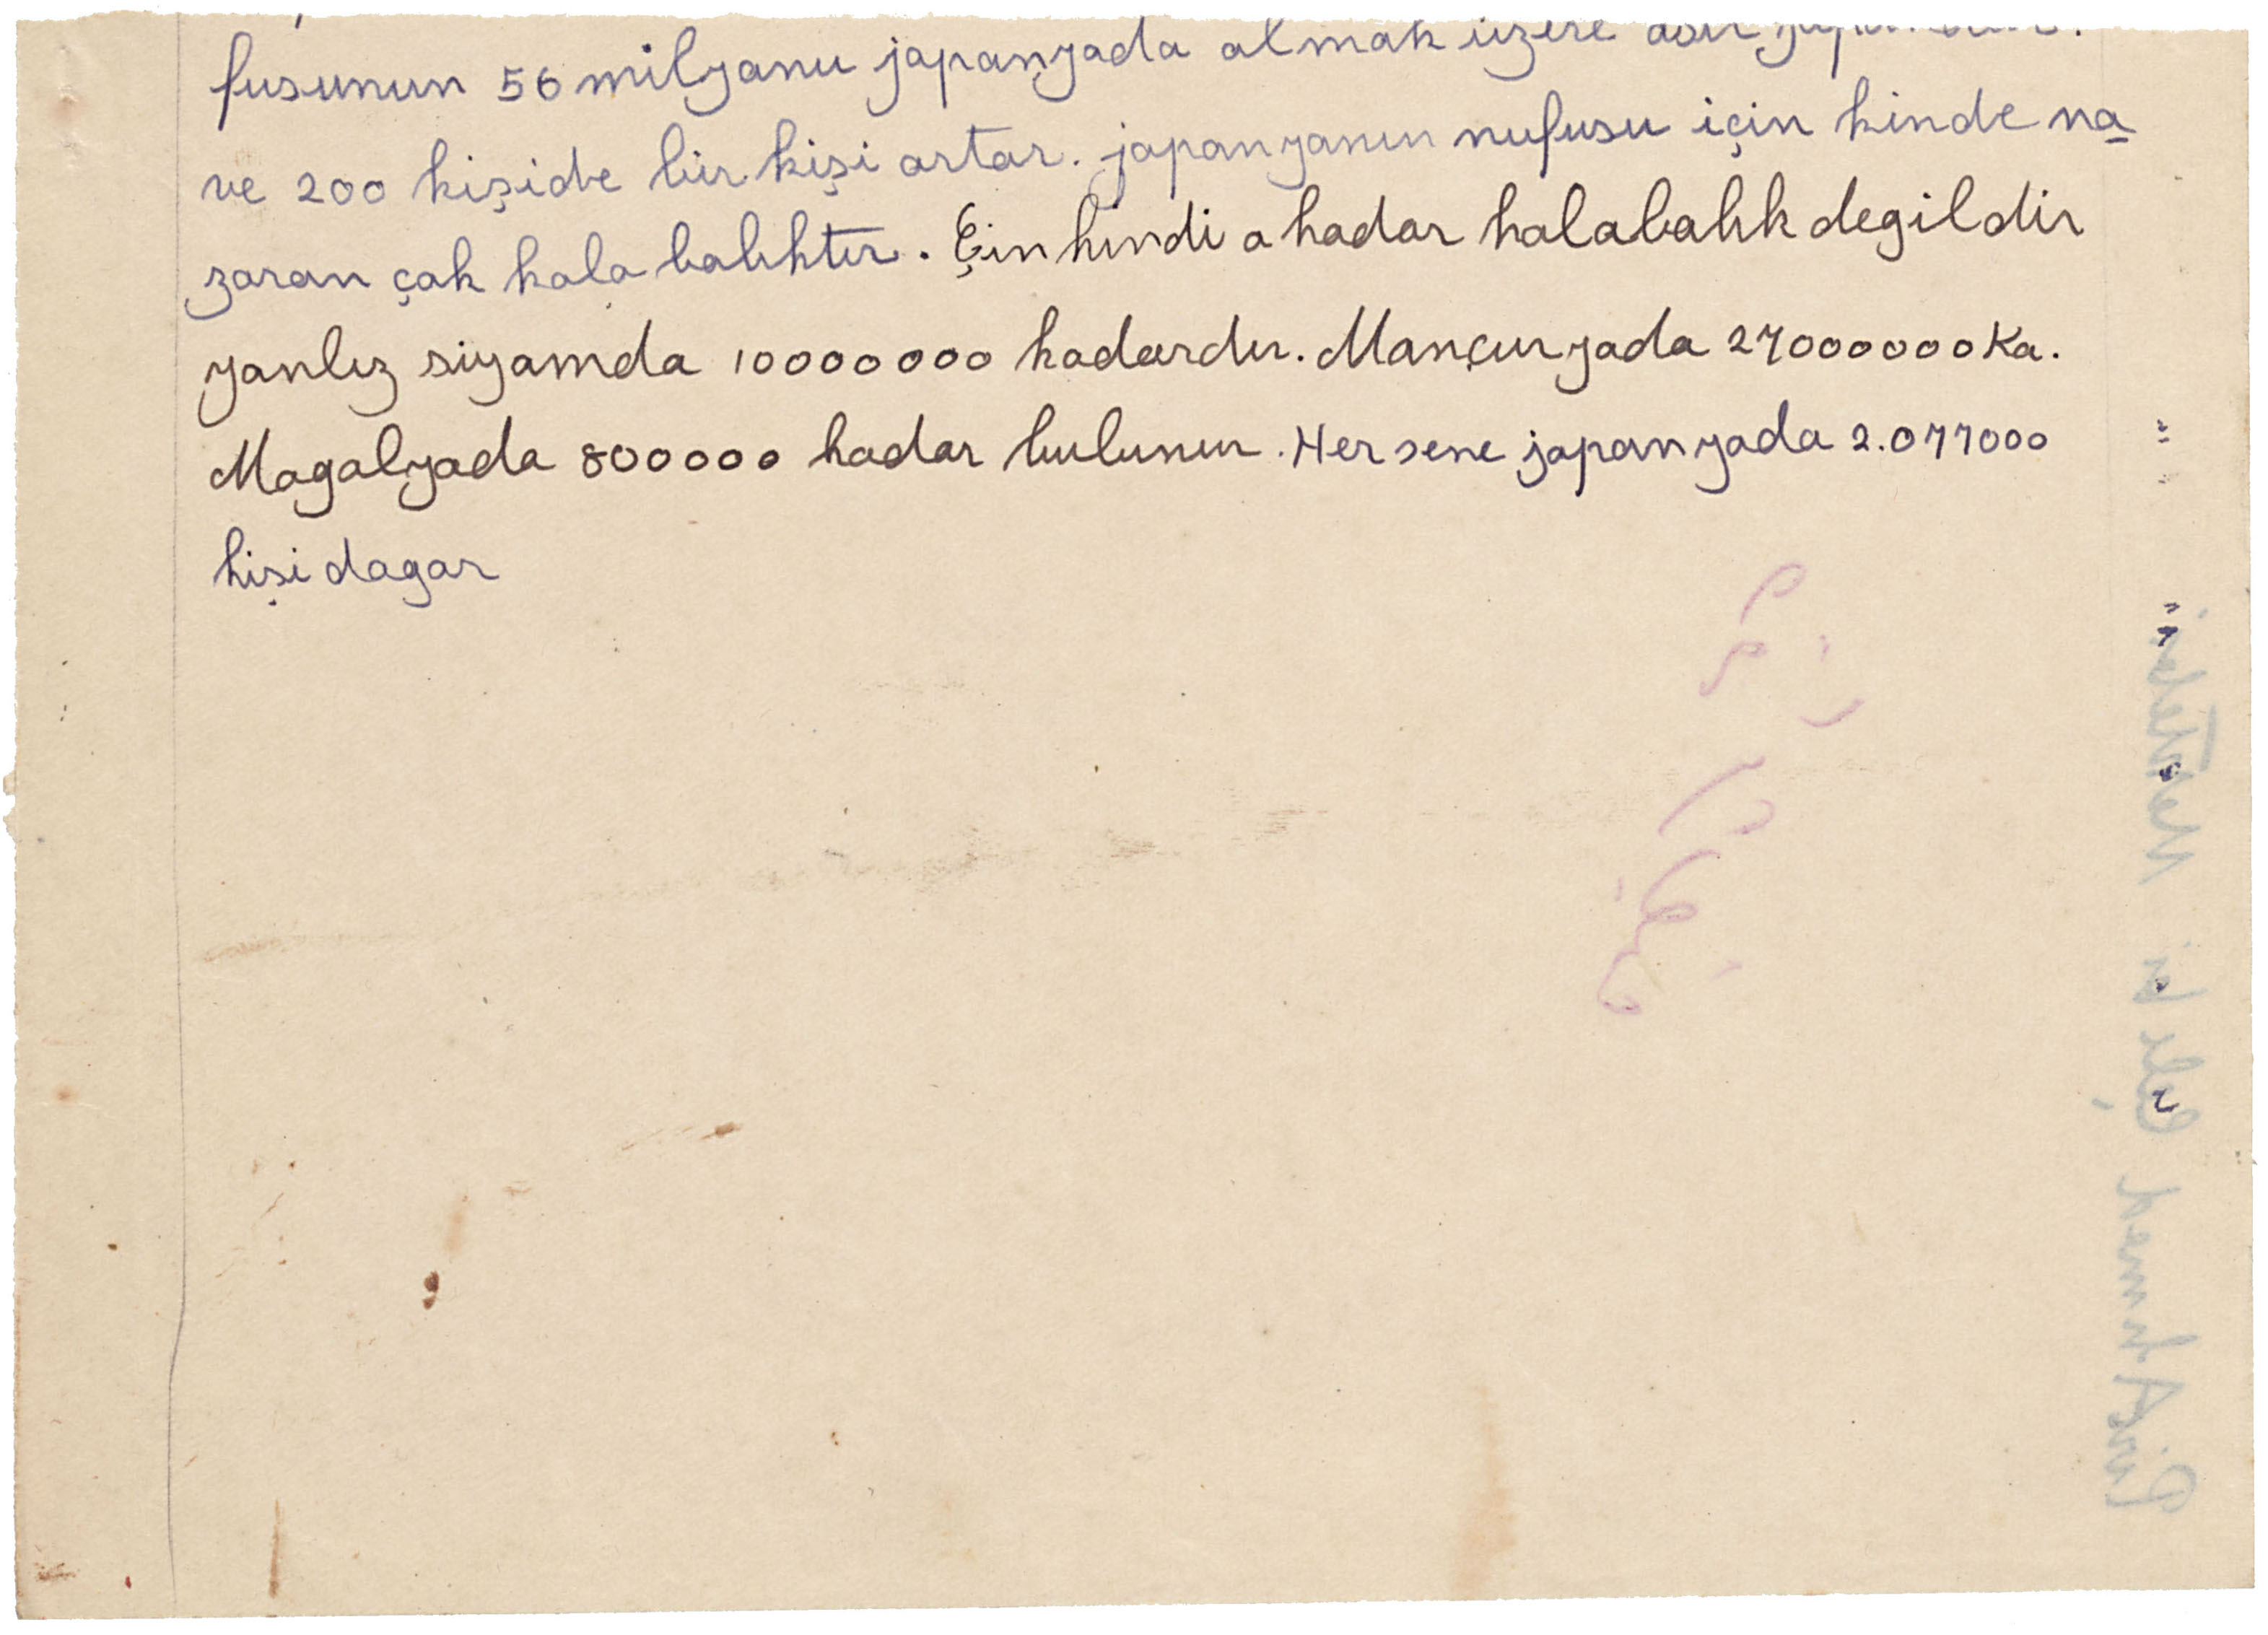 fusunun 56 milyonu japonyada olmak üzere asıl
ve 200 kişide bir kişi artar. japonyanın nufusu için hinde na
zaran çok kala balıktır. Çin hindi o kadar kalabalık degildir
yanlız siyamda 10000000 kadardır. Mançuryada 27000000 Ka.
Mogolyada 800000 kadar bulunur. Her sene japonyada 2.077000
kişi dogar